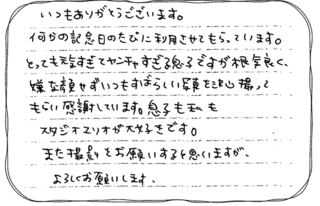 いつもありがとうございます。
何かの記念日のたびに利用させてもらっています。
とっても元気すぎてヤンチャすぎる息子ですが根気良く、
嫌な顔せずいつもすばらしい写真を撮って
もらい感謝しています。息子も私も
スタジオマリオが大好きです。
また撮影をお願いすると思いますが、
よろしくお願いします。